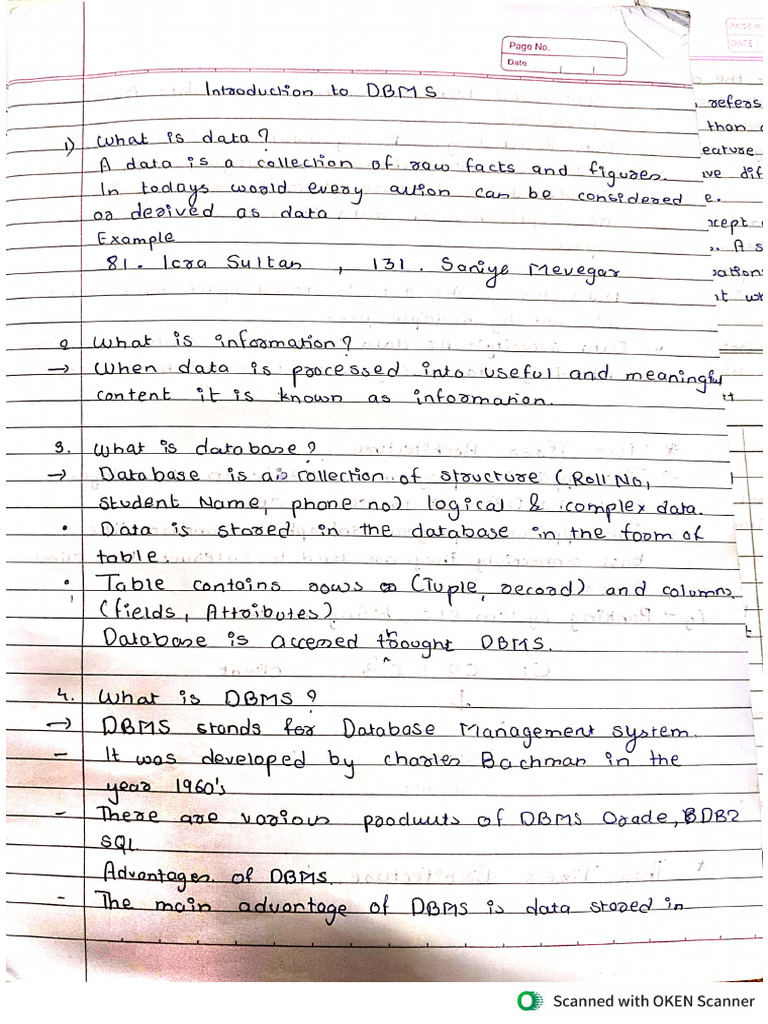 Page No.
Date
Introduction to DBMS
1) What is data?
A data is a collection of raw facts and figures.
In todays world every action can be considered
or derived as data
Example
81. Icra Sultan , 131. Saniya Mevegar
2 What is information?
→ When data is processed into useful and meaningful
content it is known as information.
3. What is database?
→ Database is a collection of structure (Roll No,
Student Name, phone no) logical & complex data.
• Data is stored in the database in the form of
table.
• Table contains rows (Tuple, record) and columns
(fields, Attributes)
Database is accessed thought DBMS.
4. What is DBMS?
→ DBMS stands for Database Management system.
- It was developed by charles Bachman in the
year 1960's
- There are various products of DBMS Oracle, DB2
SQL
Advantages of DBMS.
- The main advantage of DBMS is data stored in
refers
than
eature
ve dif
e.
xcept
A s
ations
it wh
Scanned with OKEN Scanner